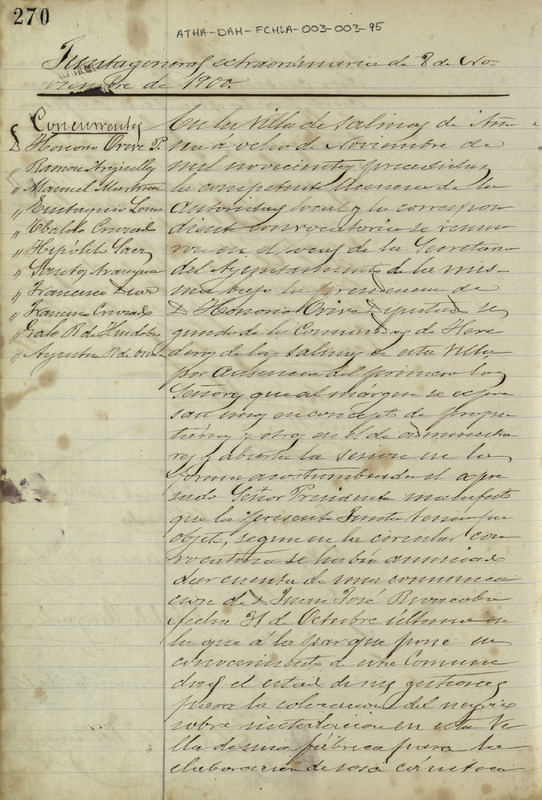 270
ATHA-DAH-FCHSA-003-003-95
Junta general extraordinaria de 8 de No-
viembre de 1900.
Concurrentes
D. Honorio Orive P.
" Ramon Arguelly
" Manuel
" Eustaquio
" Ubaldo
" Hipólito Saez
" Santos
" Francisco Diaz
" Francisco
" Galo R. de Huidobro
" Agustin R. de
En la Villa de Salinas de Aña
na a ocho de Noviembre de
mil novecientos precedidas
la competente licencia de la
Autoridad local y la correspon
diente convocatoria se reunie
ron en el local de la Secretaria
del Ayuntamiento de la mis
ma bajo la presidencia de
D. Honorio Orive Diputado se
gundo de la Comunidad de Here
deros de las Salinas de esta Villa
por ausencia del primero los
Señores que al márgen se expre
san unos en concepto de propie
tarios y otros en el de administra
res y abierta la sesion en la
forma acostumbrada el expre
sado Señor Presidente manifestó
que la presente Junta tenia por
objeto, segun en la circular con
vocatoria se habia anunciado
dar cuenta de una comunica
cion de D. Juan José
fecha 31 de Octubre último en
la que á la par que pone en
conocimiento de esta Comuni
dad el estado de sus gestiones
para la colocacion del negocio
sobre instalacion en esta Vi
lla de una fábrica para la
elaboracion de sosa cáustica